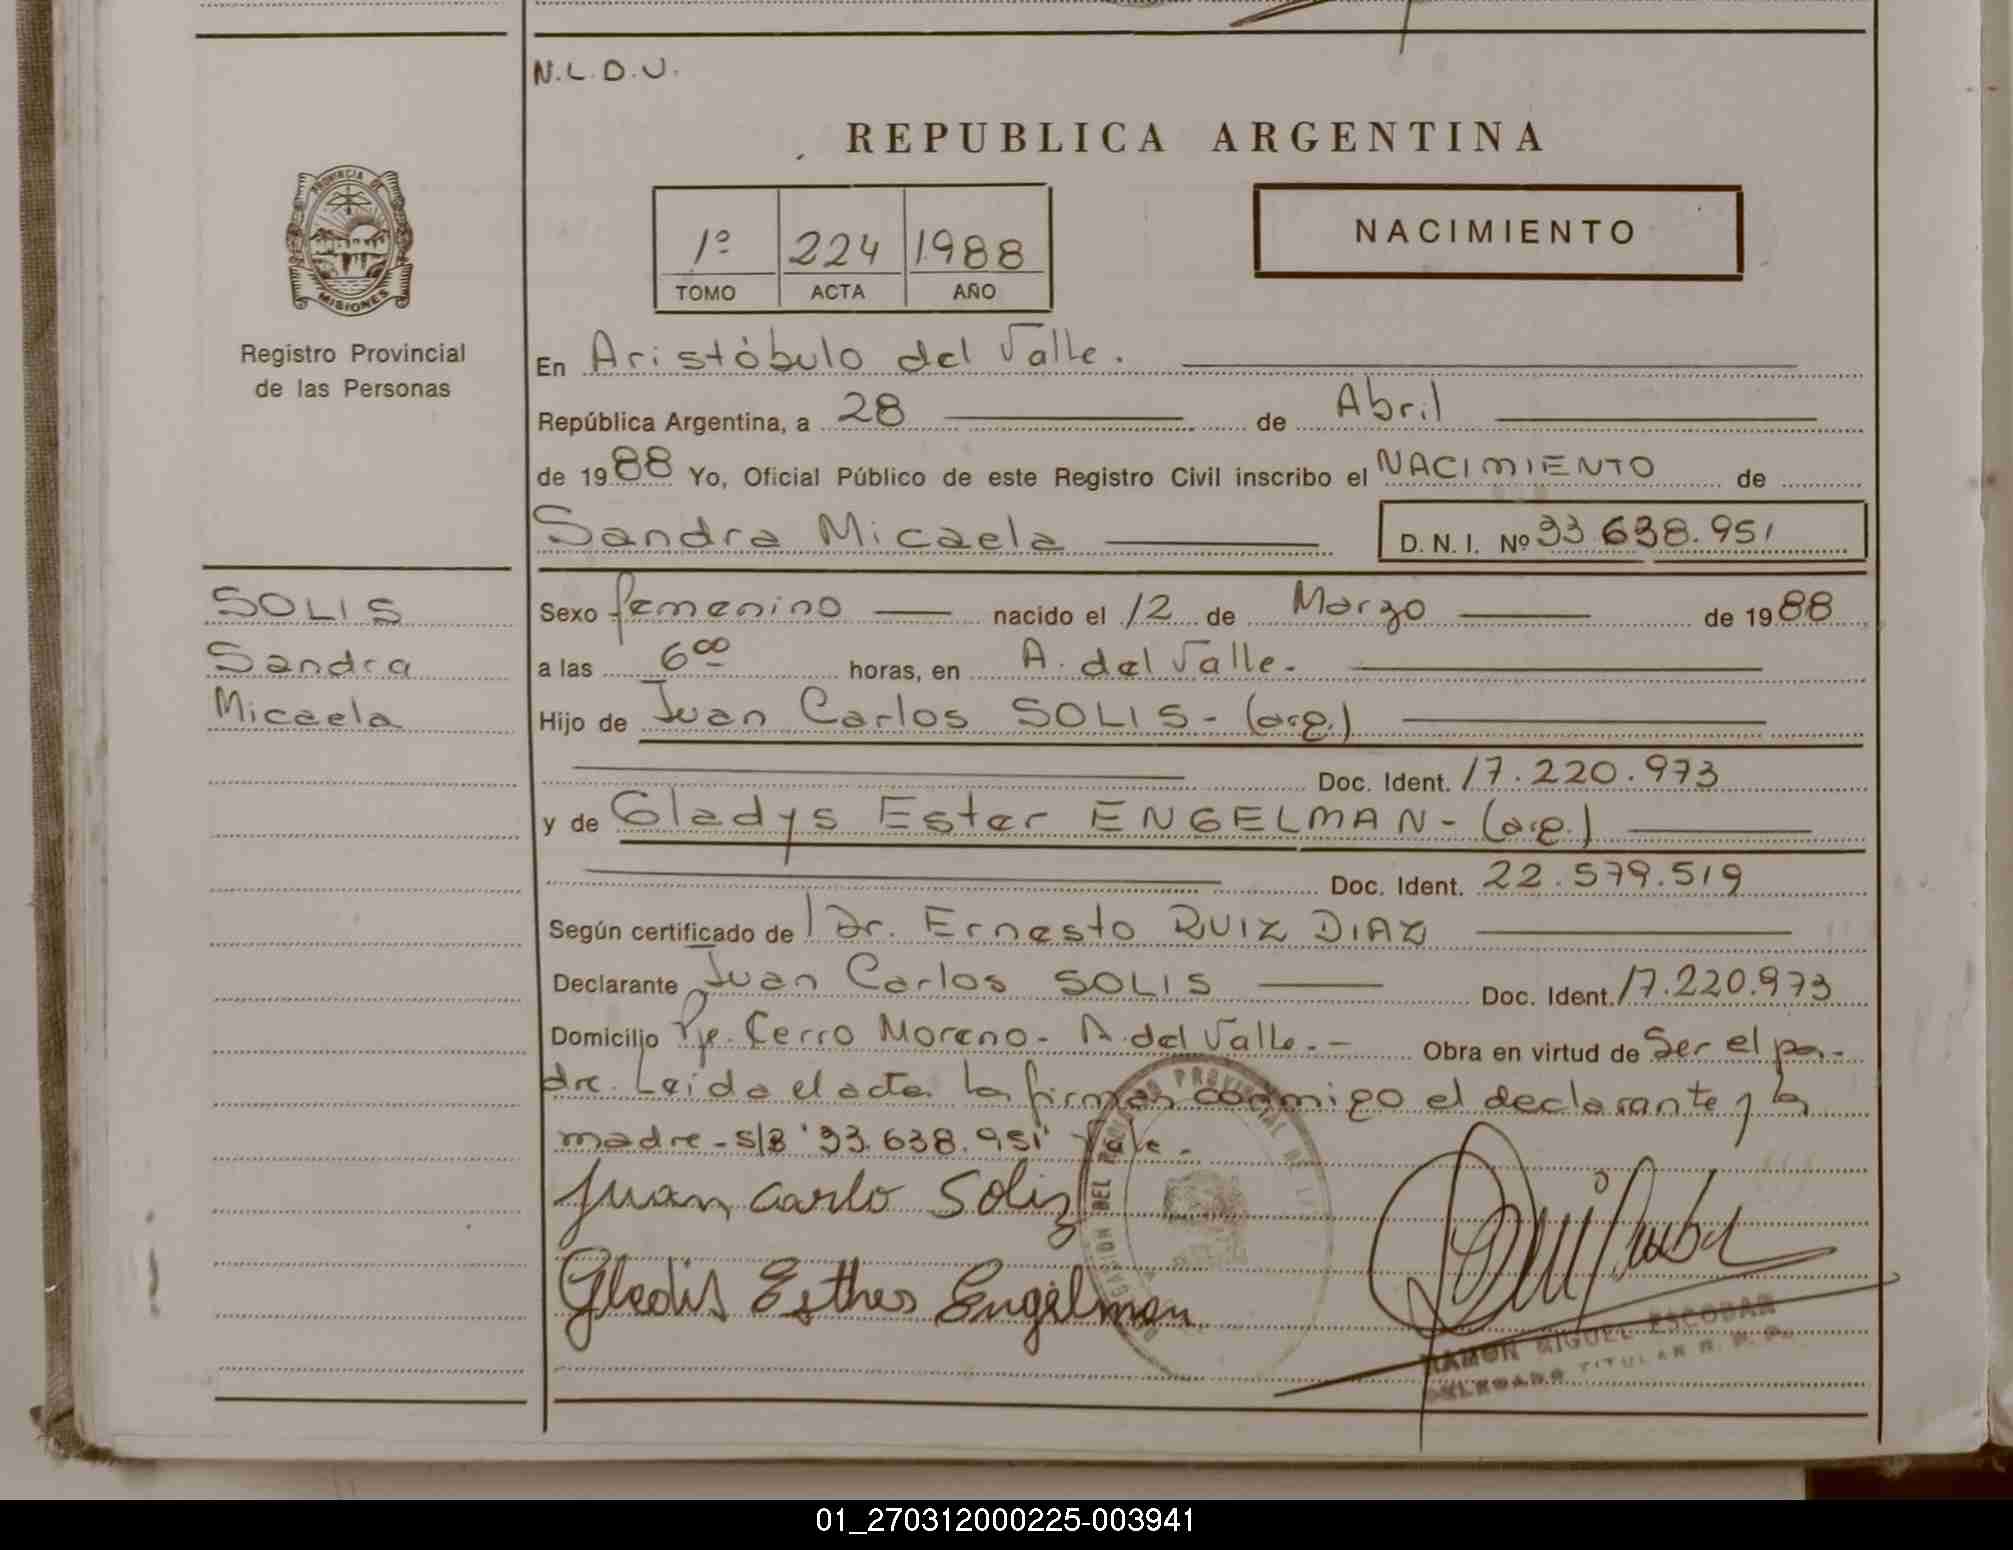 N.L.D.U.
REPUBLICA ARGENTINA
PROVINCIA DE
MISIONES
Registro Provincial
de las Personas
1º 224 1988
TOMO ACTA AÑO
NACIMIENTO
En Aristóbulo del Valle.
República Argentina, a 28 de Abril
de 1988 Yo, Oficial Público de este Registro Civil inscribo el NACIMIENTO de
Sandra Micaela D. N. I. Nº 33 638.951
SOLIS
Sandra
Micaela
Sexo femenino nacido el 12 de Marzo de 1988
a las 6⁰⁰ horas, en A. del Valle.
Hijo de Juan Carlos SOLIS - (arg.)
Doc. Ident. 17.220.973
y de Gladys Ester ENGELMAN - (arg.)
Doc. Ident. 22.579.519
Según certificado de Dr. Ernesto RUIZ DIAZ
Declarante Juan Carlos SOLIS Doc. Ident. 17.220.973
Domicilio Pje. Cerro Moreno - A. del Valle. - Obra en virtud de Ser el pa-
dre. Leida el acta la firman conmigo el declarante y la
madre - S/B "33.638.951" Vale -
Juan Carlo Soliz
Gledis Esther Engelman
RAMON MIGUEL ESCOBAR
DELEGADO TITULAR R. P. P.
01_270312000225-003941